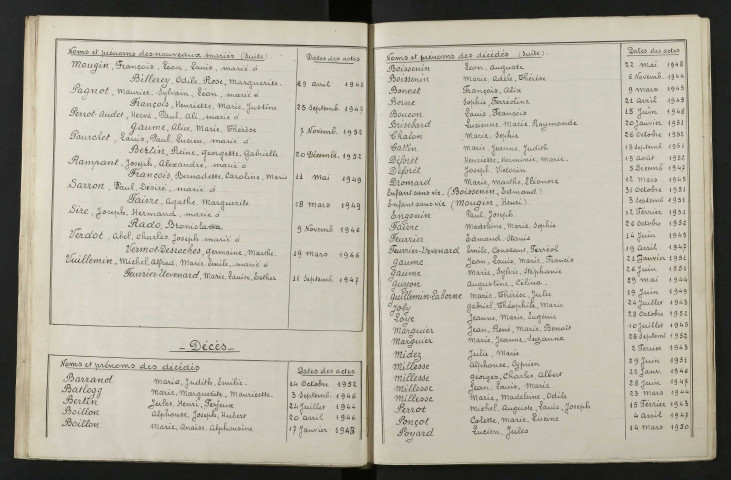 Noms et prénoms des nouveaux mariés (Suite) Dates des actes
Mougin, François, Léon, Louis, marié à
Billerey, Odile, Rose, Marguerite. 29 avril 1948
Pagnot, Maurice, Sylvain, Léon, marié à
François, Henriette, Marie, Justine 25 Septemb. 1947
Perrot-Audet, Hervé, Paul, Ali, marié à
Gaume, Alice, Marie, Thérèse 7 Novemb. 1952
Pourchet, Louis, Paul, Lucien, marié à
Bertin, Reine, Georgette, Gabrielle 20 Décembre 1952
Rampant, Joseph, Alexandre, marié à
François, Bernadette, Caroline, Marie 11 Mai 1949
Sarron, Paul, Désiré, marié à
Faivre, Agathe, Marguerite 18 mars 1949
Sire, Joseph, Hermand, marié à
Rado, Bronislawa 9 Novemb 1946
Verdot, Abel, Charles Joseph marié à
Vermot-Desroches, Germaine, Marthe. 19 mars 1946
Vuillemin, Michel, Alfred, Marie, Emile, marié à
Feuvrier-Uevenard, Marie, Louise, Esther 11 Septemb 1947
_ Décès _
Noms et prénoms des décédés Dates des actes
Barrand Maria, Judith, Emilie. 14 Octobre 1952
Batlogg Marie, Marguerite, Mauricette. 3 Septemb 1946
Bertin Jules, Henri, Ferjeux 24 Juillet 1944
Boillon Alphonse, Joseph, Hubert 20 avril 1946
Boillon Marie, Anaïse, Alphonsine 17 Janvier 1948
Noms et prénoms des décédés (Suite) Dates des actes
Boissenin Léon, Auguste 22 mai 1948
Boissenin Marie, Adèle, Thérèse 6 Novemb. 1944
Bonnet François, Alix 9 mars 1945
Borne Sophie, 21 avril 1945
Boucon Louis, François 15 Juin 1948
Brisebard Lucienne, Marie, Raymonde 20 Janvier 1951
Chalon Marie, Sophie 26 Octobre 1952
Cattin Marie, Jeanne, Judith 18 Septemb 1951
Déforêt Henriette, Herminie, Marie 15 août 1952
Déforêt Joseph, Victorin 5 Décemb 1947
Dromard Marie, Marthe, Eléonore 12 mars 1945
Enfant sans vie (Boissenin, Edmond) 31 Octobre 1951
Enfant sans vie (Mougin, Henri) 3 Septemb 1951
Engonin Paul, Joseph 12 Février 1951
Faivre Madeleine, Marie, Sophie 26 Octobre 1952
Feuvrier Edmond, Stanis 14 Juin 1949
Feuvrier-Uevenard Emile, Constant, Ferréol 19 avril 1947
Gaume Jean, Louis, Marie, Francis 21 Janvier 1951
Gaume Marie, Sylvie, Stéphanie 26 Juin 1951
Guyon Augustine, Célina 29 mai 1944
Guillemin-Laborne Marie, Thérèse, Julie 19 Juin 1949
Joly Gabriel, Théophile, Marie 24 Juillet 1943
Loye Jeanne, Marie, Eugénie 28 Octobre 1952
Marguier Jean, René, Marie, Benoît 10 Juillet 1945
Marguier Marie, Jeanne, Suzanne 26 Septemb 1952
Midez Julie, Marie 2 Février 1943
Millesse Alphonse, Cyprien 29 Juin 1951
Millesse Georges, Charles, Albert 22 Janv. 1946
Millesse Jean, Louis, Marie 28 Juin 1947
Millesse Marie, Madeleine, Odile 23 mars 1944
Perrot Michel, Auguste, Louis, Joseph 15 Février 1943
Ponçot Colette, Marie, Lucine 4 avril 1947
Poyard Lucien, Jules 14 mars 1950